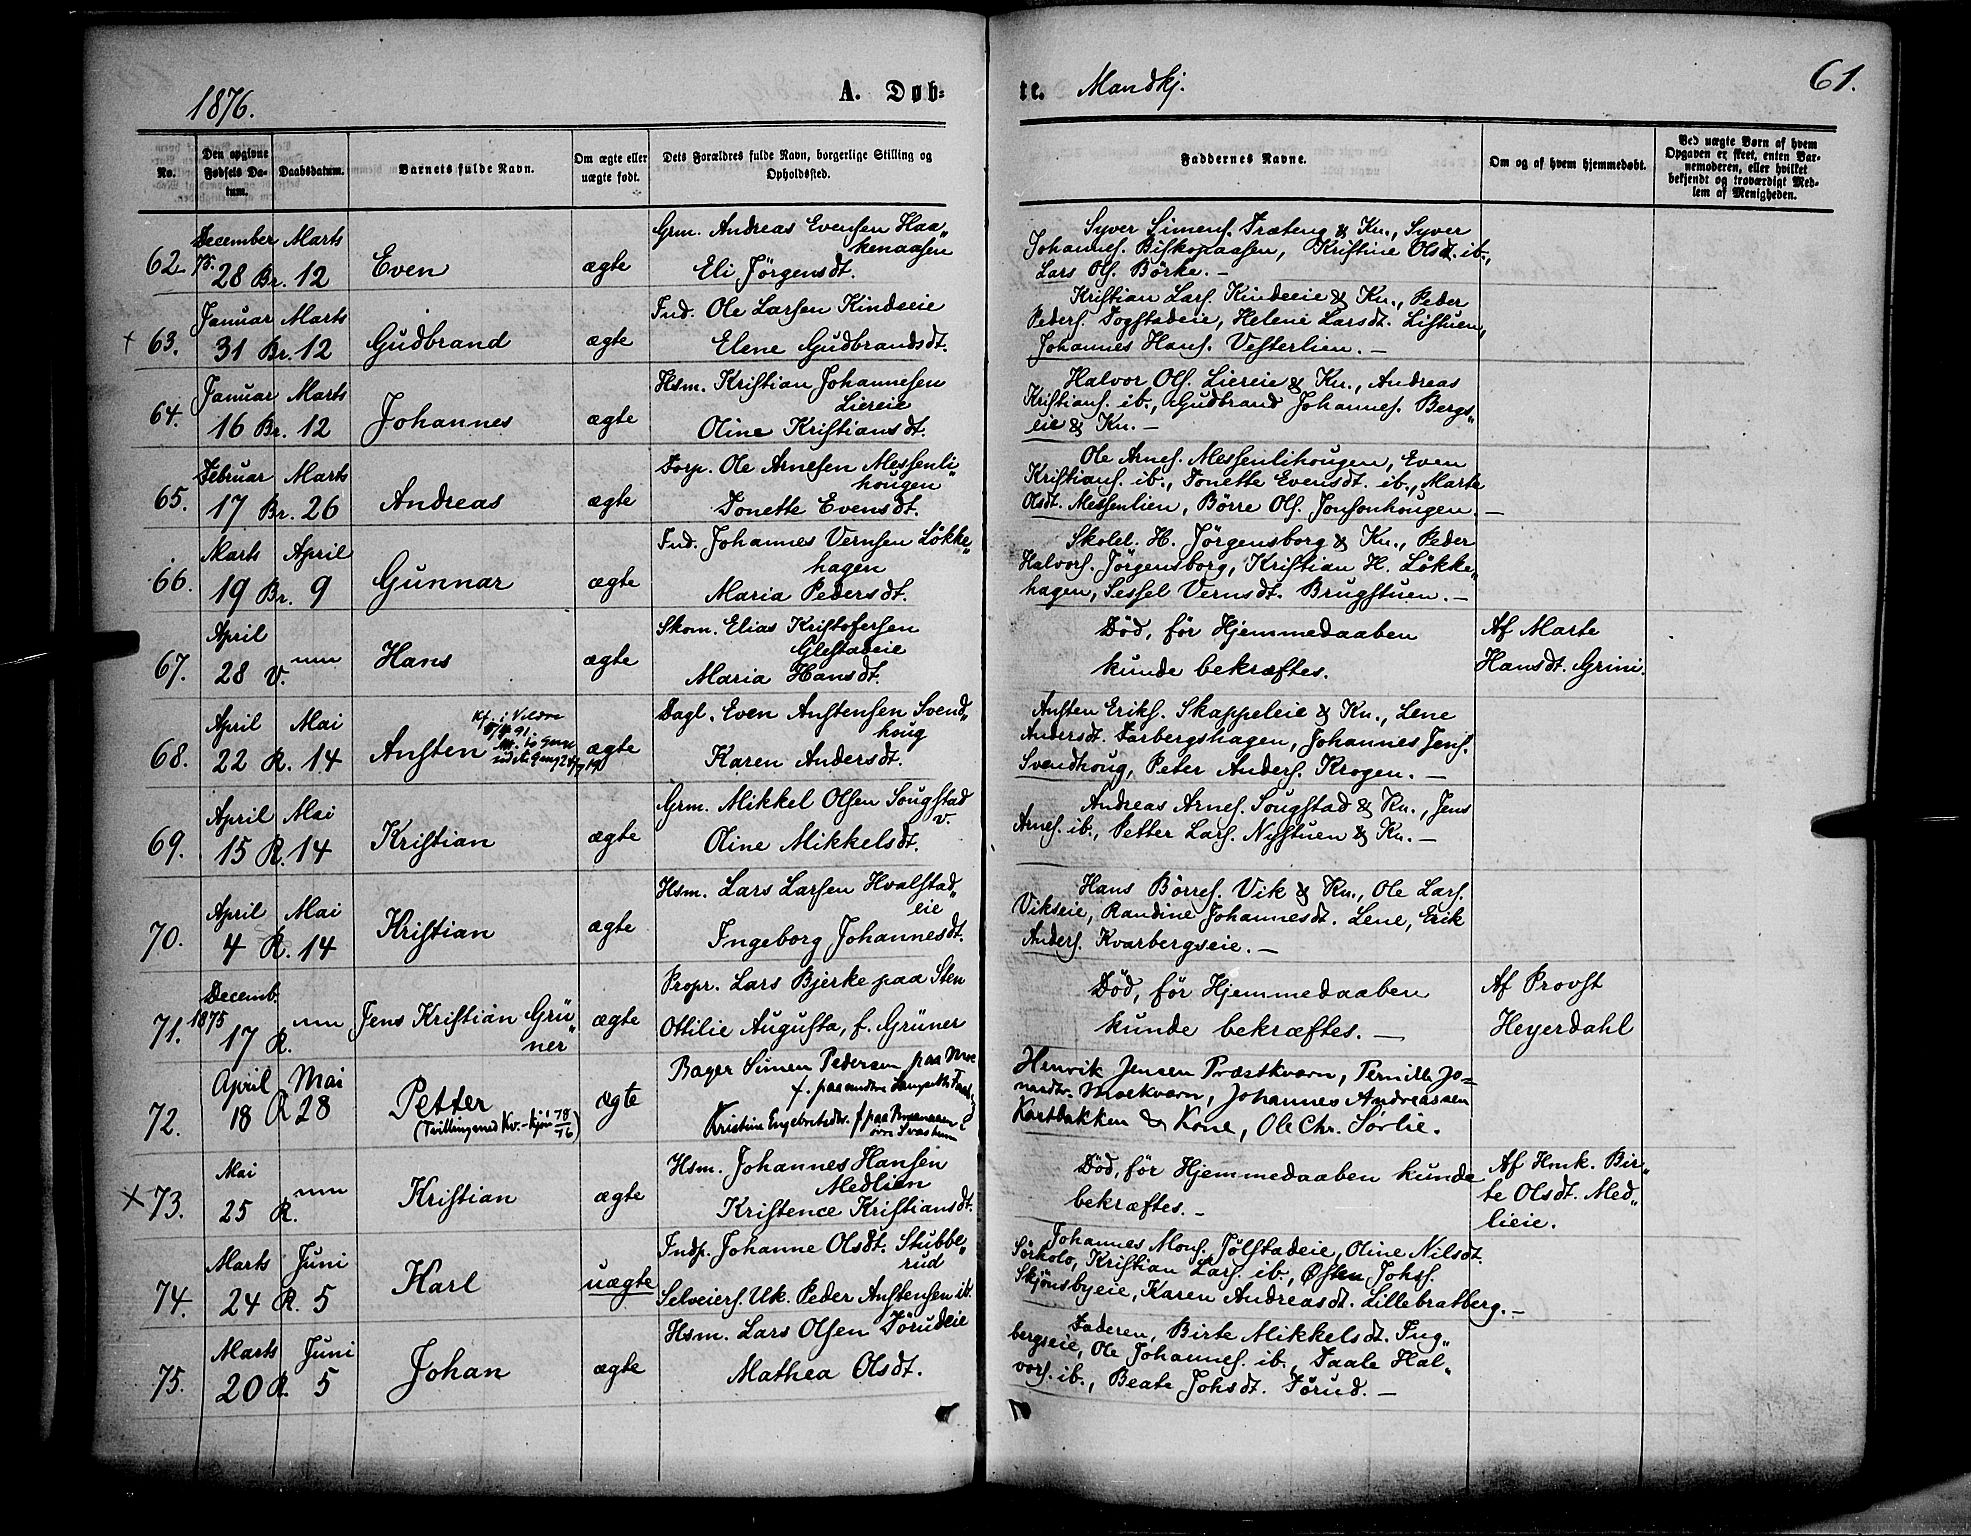 1876.
A. Døb-
te. Mandkj.
61.
No.
Den opgivne Fødsels Da-
tum.
Daabsdatum.
Barnets fulde Navn.
Om ægte eller
uægte født.
Dets Forældres fulde Navn, borgerlige Stilling og
Opholdssted.
Faddernes Navne.
Om og af hvem hjemmedøbt.
Ved uægte Børn af hvem
Opgaven er skeet, enten Bar-
nemoderen, eller hvilket
bekjendt og troværdigt Med-
lem af Menigheden.
62. December 75. 28 Br. Marts 12
Even
ægte
Grm. Andreas Evensen Haa„
kenaasen
Eli Jörgensdt.
Syver Simens. Træteng & Kn., Syver
Johannes. Biskopaasen, Kristine Olsdt. ib.,
Lars Ols. Börke. –
+ 63. Januar 31 Br. Marts 12
Gudbrand
ægte
Ind. Ole Larsen Kindseie
Elene Gudbrandsdt.
Kristian Lars. Kindseie & Kn., Peder
Peders. Togstadeie, Helene Larsdt. Listuen,
Johannes Hans. Vesterlien. –
64. Januar 16 Br. Marts 12
Johannes
ægte
Hsm. Kristian Johannesen
Liereie
Oline Kristiansdt.
Halvor Ols. Liereie & Kn., Andreas
Kristians. ib., Gudbrand Johannes. Bergs„
eie & Kn. –
65. Februar 17 Br. Marts 26
Andreas
ægte
Forp. Ole Arnesen Messenli„
hougen
Tonette Evensdt.
Ole Arnes. Messenlihougen, Even
Kristians. ib., Tonette Evensdt. ib., Marte
Olsdt. Messenlien, Börre Ols. Jonsonhougen. –
66. Marts 19 Br. April 9
Gunnar
ægte
Ind. Johannes Vernsen Lökke„
hagen
Maria Pedersdt.
Skolel. H. Jörgensborg & Kn., Peder
Halvors. Jörgensborg, Kristian H. Lökke„
hagen, Sessel Vernsdt. Brugstuen. –
67. April 28 V.
Hans
ægte
Skom. Elias Kristofersen
Glestadeie
Maria Hansdt.
Död, för Hjemmedaaben
kunde bekræftes.
Af Marte
Hansdt. Grini.
68. April 22 R. Mai 14
Ansten
Kf. i Veldre
ægte
Dagl. Even Anstensen Svend„
houg
Karen Andersdt.
Ansten Eriks. Skappeleie & Kn., Lene
Andersdt. Farbergshagen, Johannes Jens.
Svendhoug, Peter Anders. Krogen. –
69. April 15 R. Mai 14
Kristian
ægte
Grm. Mikkel Olsen Sougstad
v.
Oline Mikkelsdt.
Andreas Arnes. Sougstad & Kn., Jens
Arnes. ib., Petter Lars. Nystuen & Kn. –
70. April 4 R. Mai 14
Kristian
ægte
Hsm. Lars Larsen Hvalstad„
eie
Ingeborg Johannesdt.
Hans Börres. Vik & Kn., Ole Lars.
Vikseie, Randine Johannesdt. Lene, Erik
Anders. Kvarbergseie. –
71. Decemb. 1875 17 R.
Jens Kristian Grü„
ner
ægte
Propr. Lars Bjerke paa Sten
Ottilie Augusta, f. Grüner
Död, för Hjemmedaaben
kunde bekræftes. –
Af Provst
Heyerdahl
72. April 18 R Mai 28
Petter
(Tvilling med Kv.-kjön 78/76)
ægte
Bager Simen Pedersen paa Moe
Kristine Engebretsdtr.
Henrik Jensen Præstkværn, Pernille Jo=
nardtr. Moekværn, Johannes Andreassen
Kartbakken & Kone, Ole Chr. Sørlie.
x 73. Mai 25 R.
Kristian
ægte
Hsm. Johannes Hansen
Medlien
Kristence Kristiansdt.
Död, för Hjemmedaaben kunde
bekræftes. –
Af Hmk. Bir„
te Olsdt. Med„
lieie.
74. Marts 24 R. Juni 5
Karl
uægte
Indp. Johanne Olsdt. Stubbe„
rud
Selveiers. Uk. Peder Anstensen ib.
Johannes Mons. Tolstadeie, Oline Nilsdt.
Sörkolo, Kristian Lars. ib., Östen Johs.
Skjönsbyeie, Karen Andreasdt. Lillebratberg. –
75. Marts 20 R. Juni 5
Johan
ægte
Hsm. Lars Olsen Törudeie
Mathea Olsdt.
Faderen, Birte Mikkelsdt. Ing„
bergseie, Ole Johannes. ib., Paale Hal„
vors. ib., Beate Johsdt. Törud. –